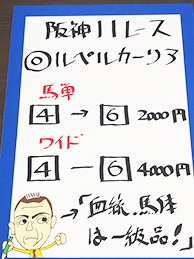 阪神11レース
◎ルペルカーリア
馬単
4→6 2000円
ワイド
4―6 4000円
→「血統、馬体
は一級品！」